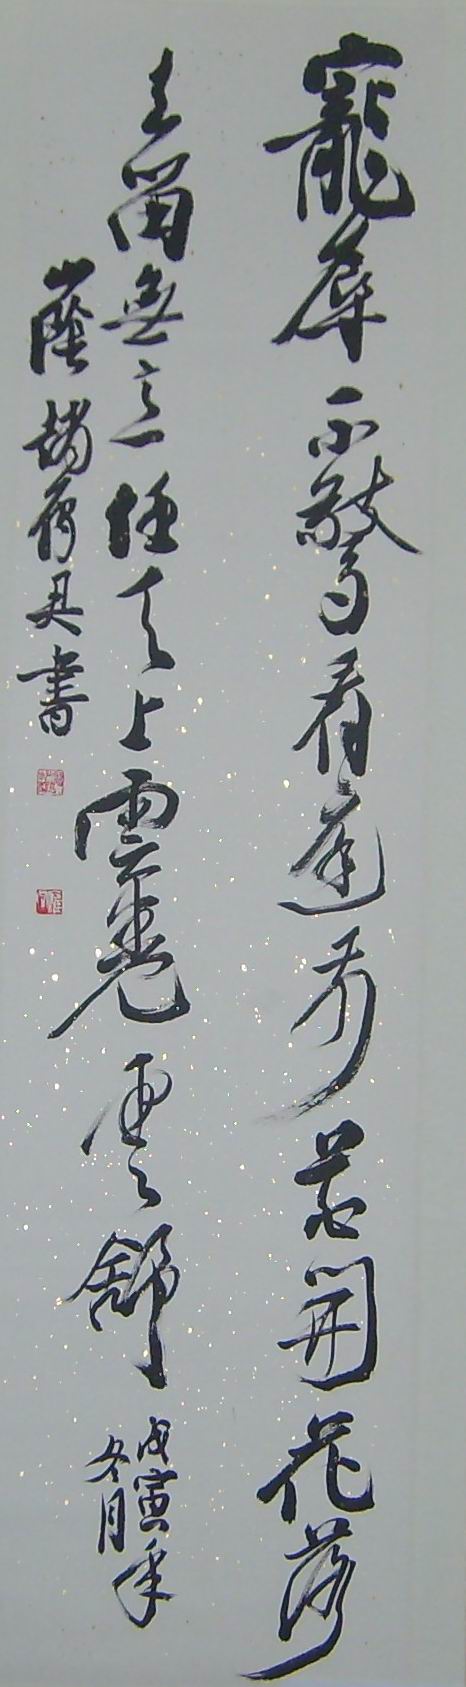 寵辱不驚看庭前花開花落
去留無意任天上雲卷雲舒
戊寅年
冬月
山陰 書